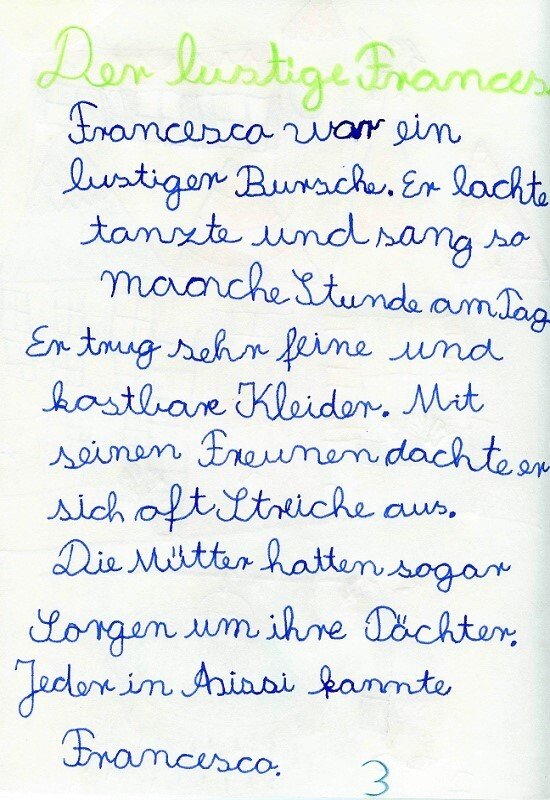 Der lustige Frances
Francesco war ein
lustiger Bursche. Er lachte
tanzte und sang so
manche Stunde am Tag
Er trug sehr feine und
kostbare Kleider. Mit
seinen Freunen dachte er
sich oft Streiche aus.
Die Mütter hatten sogar
Sorgen um ihre Töchter.
Jeder in Asissi kannte
Francesco.
3